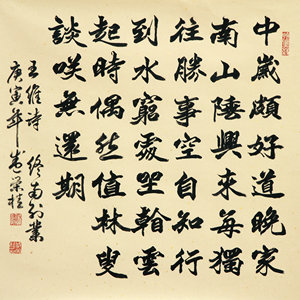 中歲頗好道晚家
南山陲興來每獨
往勝事空自知行
到水窮處坐看雲
起時偶然值林叟
談咲無還期
王維詩 終南別業
庚寅年 榮桂